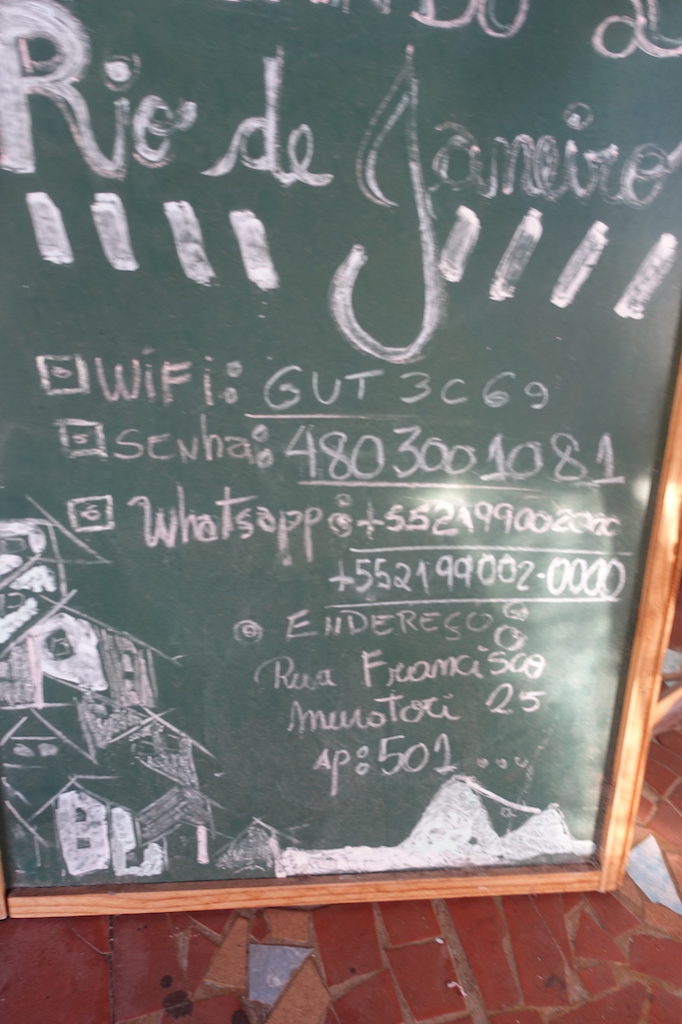 Rio de Janeiro
WiFi: GUT3C69
Senha: 4803001081
Whatsapp:
+552199002-0000
ENDEREÇO:
Rua Francisco
Muratori 25
ap: 501 ...